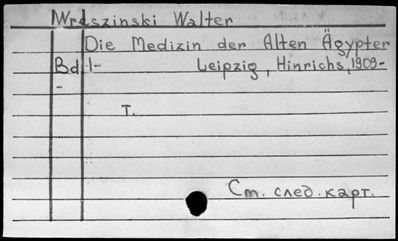 Wreszinski Walter
Die Medizin der Alten Ägypter
Bd 1- Leipzig, Hinrichs, 1909-
-
T.
Cm. след. карт.